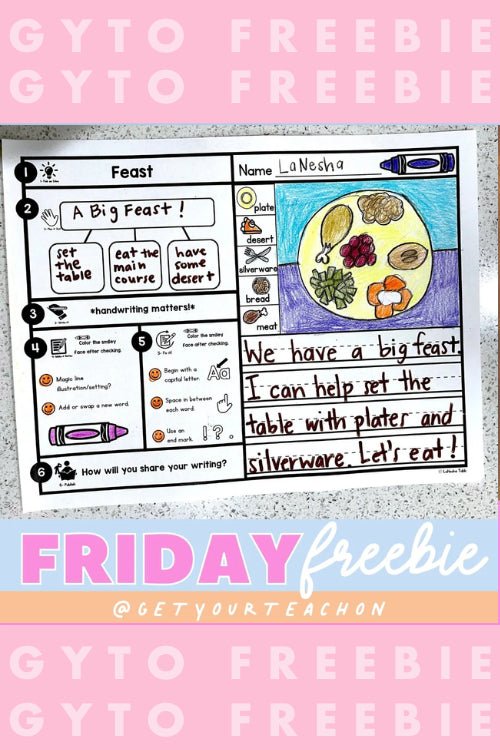 GYTO FREEBIE
GYTO FREEBIE
1
Feast
Name LaNesha
2
A Big Feast!
set the table
eat the main course
have some desert
plate
desert
silverware
bread
meat
3
*handwriting matters!*
4
Color the smiley
Face after checking.
Magic line
illustration/setting?
Add or swap a new word.
5
Color the smiley
Face after checking.
Begin with a
capital letter.
Aa
Space in between
each word.
Use an
end mark.
! ? .
6
How will you share your writing?
We have a big feast.
I can help set the
table with plates and
silverware. Let's eat!
FRIDAY freebie
@GETYOURTEACHON
GYTO FREEBIE
GYTO FREEBIE